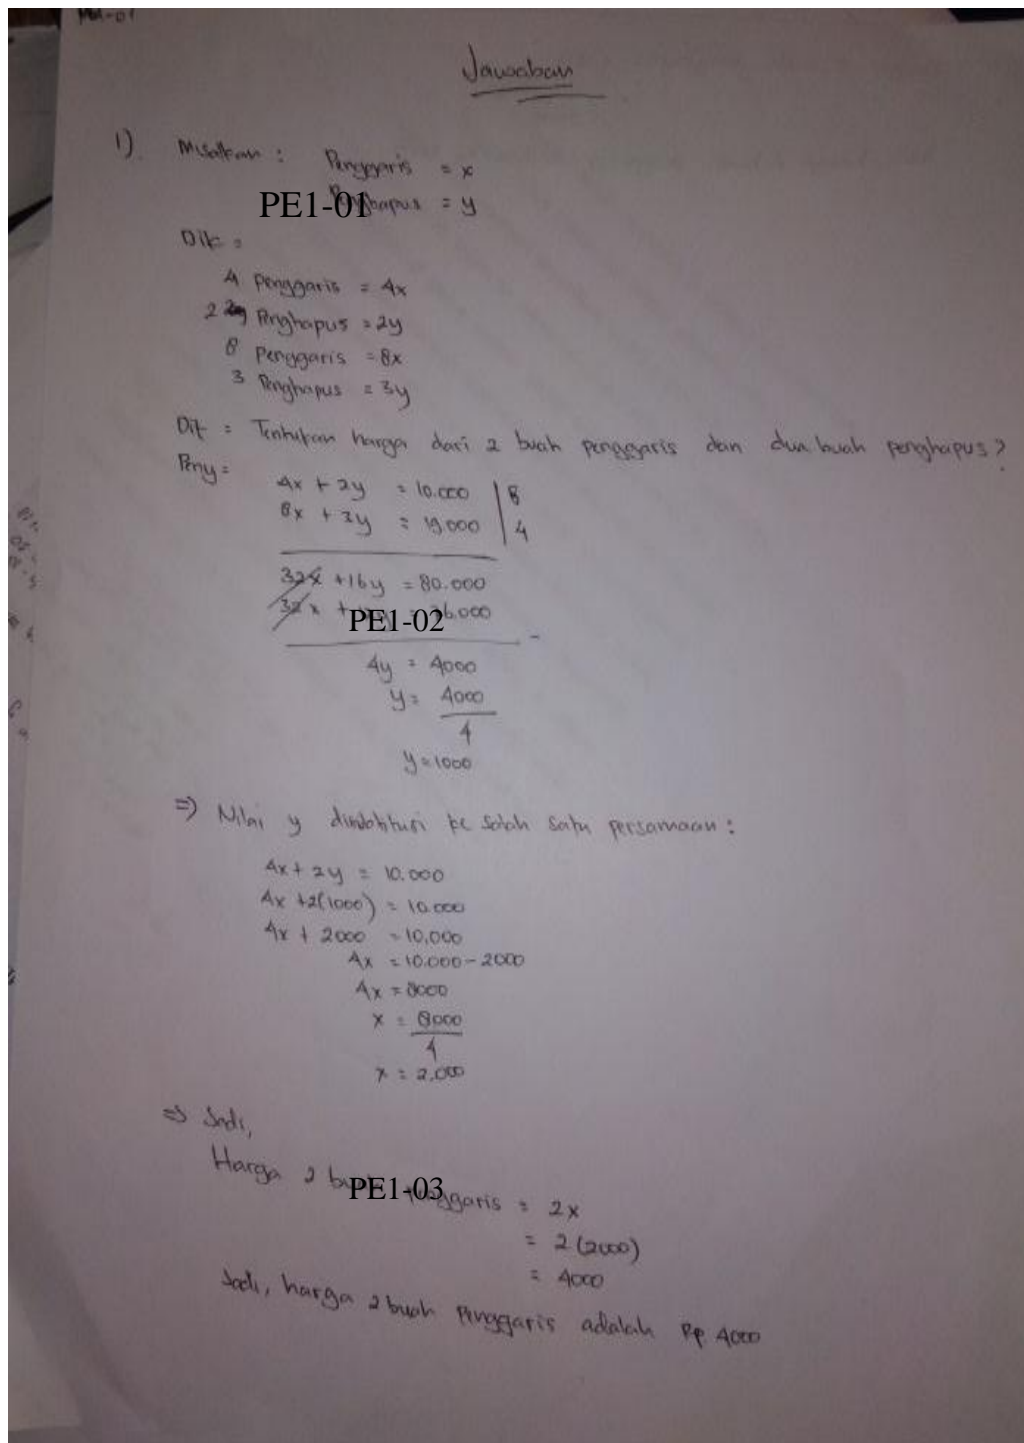 Jawaban
1). Misalkan : Penggaris = x
PE1-01
Penghapus = y
Dik =
4 Penggaris = 4x
2 Penghapus = 2y
8 Penggaris = 8x
3 Penghapus = 3y
Dit = Tentukan harga dari 2 buah penggaris dan dua buah penghapus?
Peny =
4x + 2y = 10.000 | 8
8x + 3y = 19000 | 4
32x + 16y = 80.000
32x + = 76.000
PE1-02
-
4y = 4000
y = 4000
4
y = 1000
=> Nilai y disubtitusi ke salah satu persamaan :
4x + 2y = 10.000
4x + 2(1000) = 10.000
4x + 2000 = 10,000
4x = 10.000 - 2000
4x = 8000
x = 8000
4
x = 2.000
=> Jadi,
Harga 2 buah Penggaris = 2x
PE1-03
= 2 (2000)
= 4000
Jadi, harga 2 buah Penggaris adalah Rp 4000